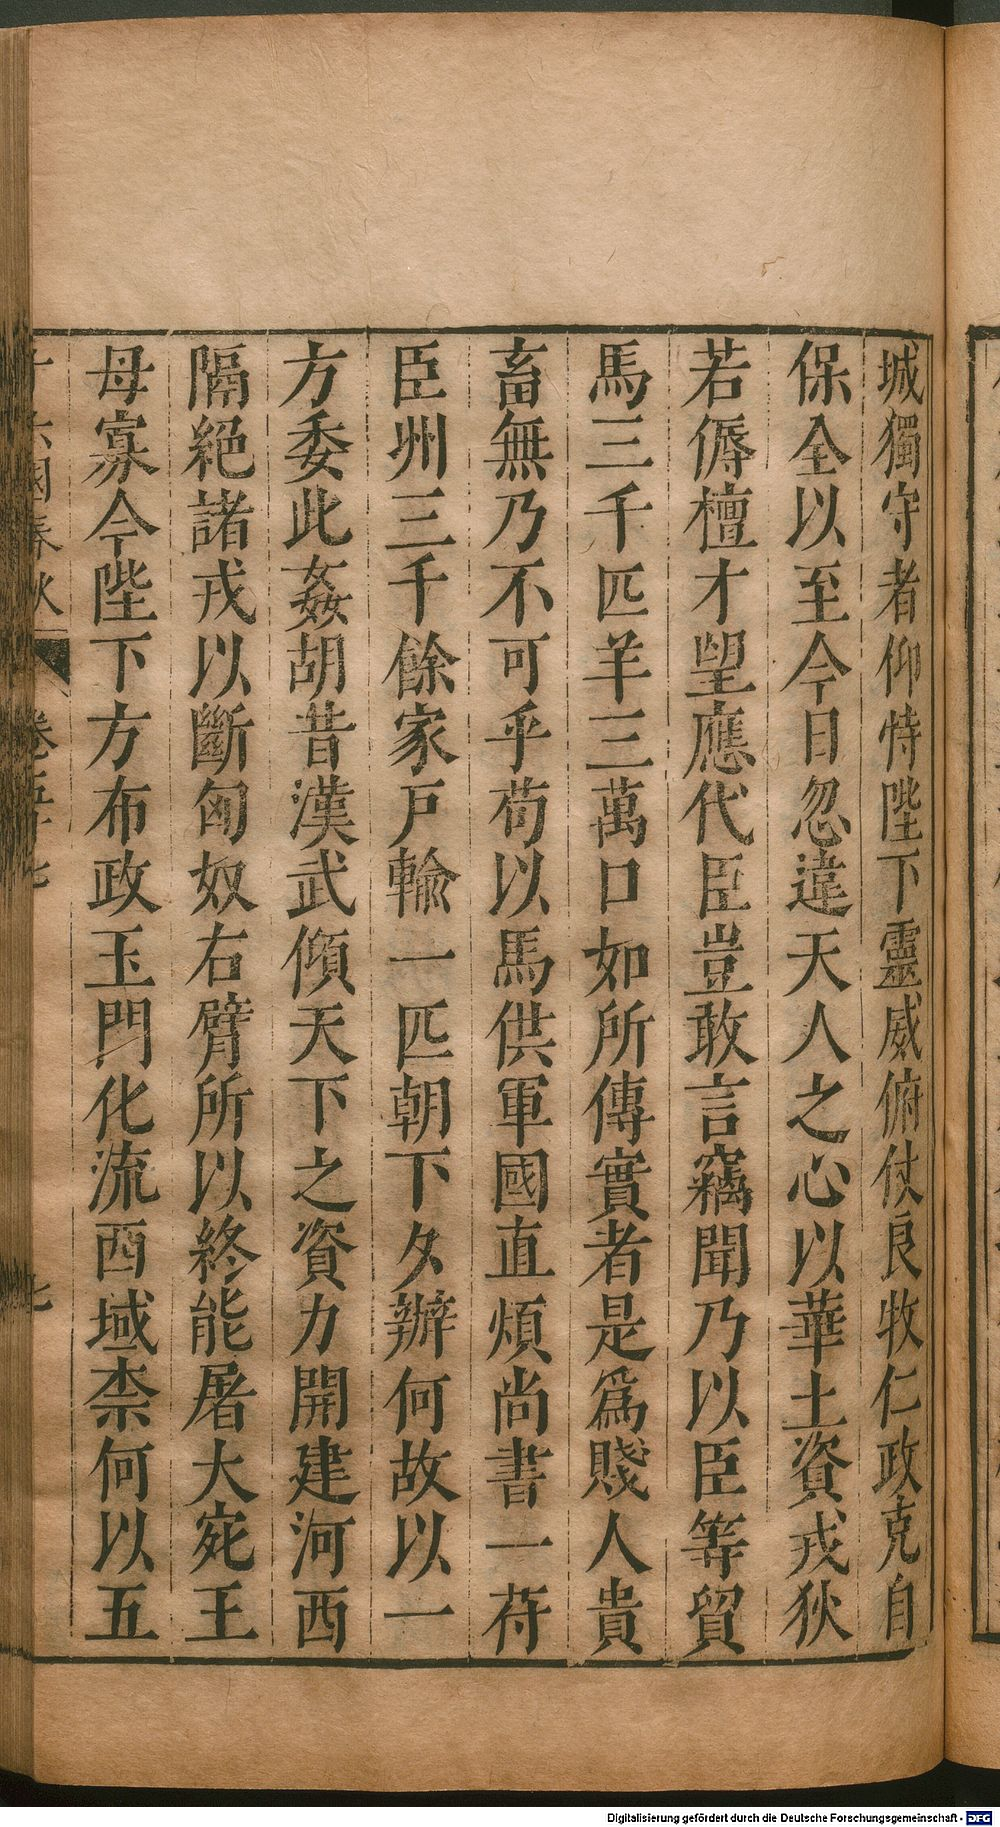 城獨守者仰恃陛下靈威俯仗良牧仁政克自
保全以至今日忽違天人之心以華土資戎狄
若傉檀才望應代臣豈敢言竊聞乃以臣等貿
馬三千匹羊三萬口如所傳實者是爲賤人貴
畜無乃不可乎苟以馬供軍國直煩尚書一苻
臣州三千餘家戶輸一匹朝下夕辦何故以一
方委此姦胡昔漢武傾天下之資力開建河西
隔絕諸戎以斷匈奴右臂所以終能屠大宛王
母寡今陛下方布政玉門化流西域柰何以五
十六國春秋 卷五十七 七
Digitalisierung gefördert durch die Deutsche Forschungsgemeinschaft - DFG